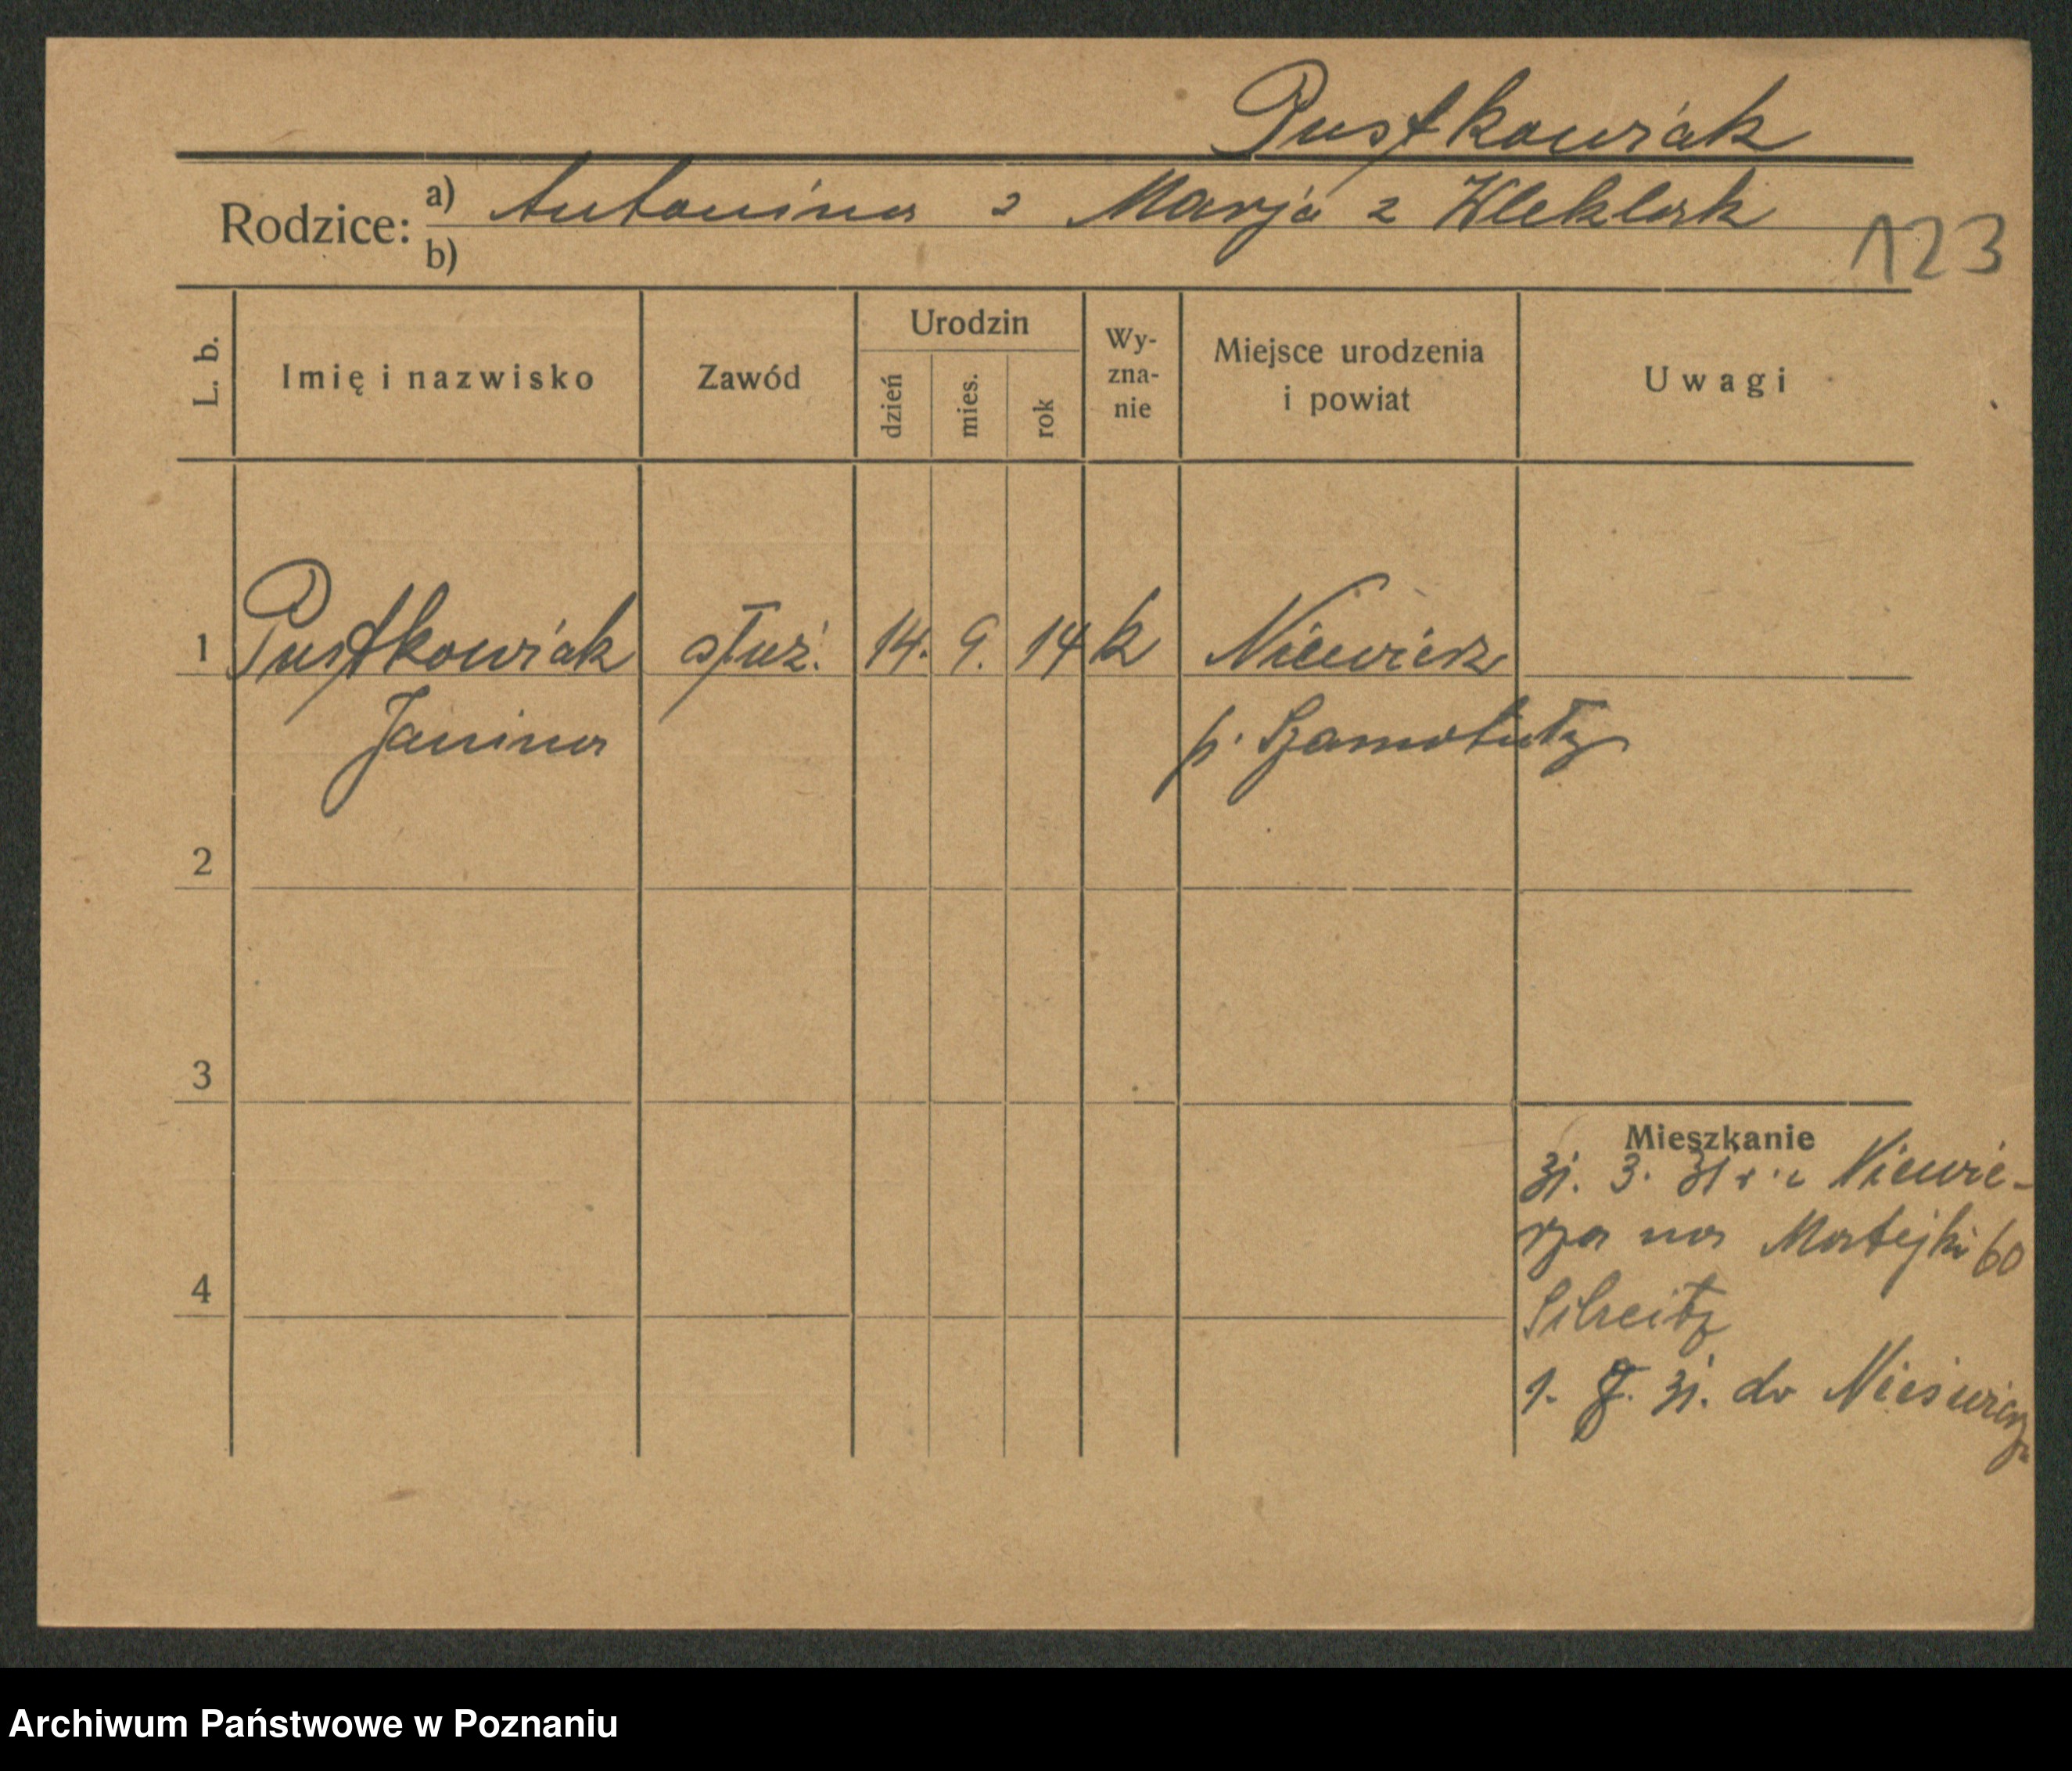 Pustkowiak
Rodzice: a) Antonina z Marja z Kleklak
b)
123
L. b.
Imię i nazwisko
Zawód
Urodzin
dzień
mies.
rok
Wy-
zna-
nie
Miejsce urodzenia
i powiat
Uwagi
1 Pustkowiak służ. 14. 9. 14 k Niewierz
Janina p. Szamotuły
2
3
4
Mieszkanie
31. 3. 31 r. z Niewie-
rza na Matejki 60
1. 7. 31. do Niewierz
Archiwum Państwowe w Poznaniu